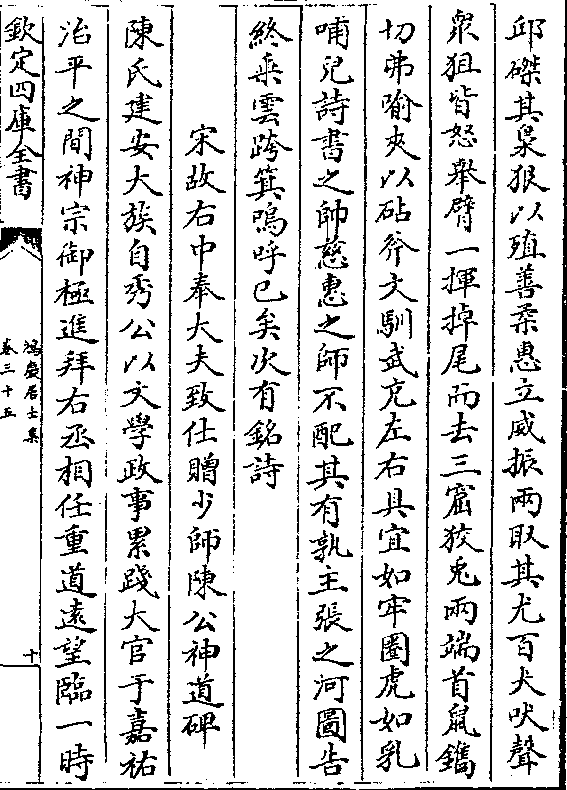 邱磔其梟狠以殖善柔惠立威振兩取其尤百犬吠聲
衆狙皆怒舉臂一揮掉尾而去三窟狡兎兩端首鼠鐫
切弗喻夾以砧斧文馴武克左右具宜如牢圈虎如乳
哺兒詩書之帥慈惠之師不配其有孰主張之河圖告
終乘雲跨箕嗚呼已矣次有銘詩
宋故右中奉大夫致仕贈少師陳公神道碑
陳氏建安大族自秀公以文學政事累踐大官于嘉祐
治平之間神宗御極進拜右丞相任重道遠望臨一時
欽定四庫全書
鴻慶居士集
卷三十五
十